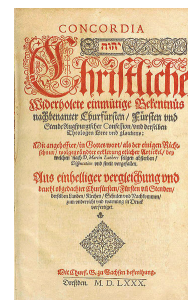 CONCORDIA
יהוה
Christliche
Widerholete einmütige Bekentnüs
nachbenanter Churfürsten / Fürsten vnd
Stende Augspurgischer Confession / vnd derselben
Theologen Lere vnd glaubens:
Mit angeheffter / in Gottes wort / als der einigen Richt-
schnur / wolgegründter erklerung etlicher Artickel / bey
welchen nach D. Martin Luthers seligen absterben /
Disputation vnd streit vorgefallen.
Aus einhelliger vergleichung vnd
beuehl obgedachter Churfürsten / Fürsten vnd Stenden /
derselben Landen / Kirchen / Schulen vnd Nachkommen /
zum vnterricht vnd warnung in Druck
verfertiget.
Mit Churf. G. zu Sachsen befreihung.
Dreßden. M. D. LXXX.